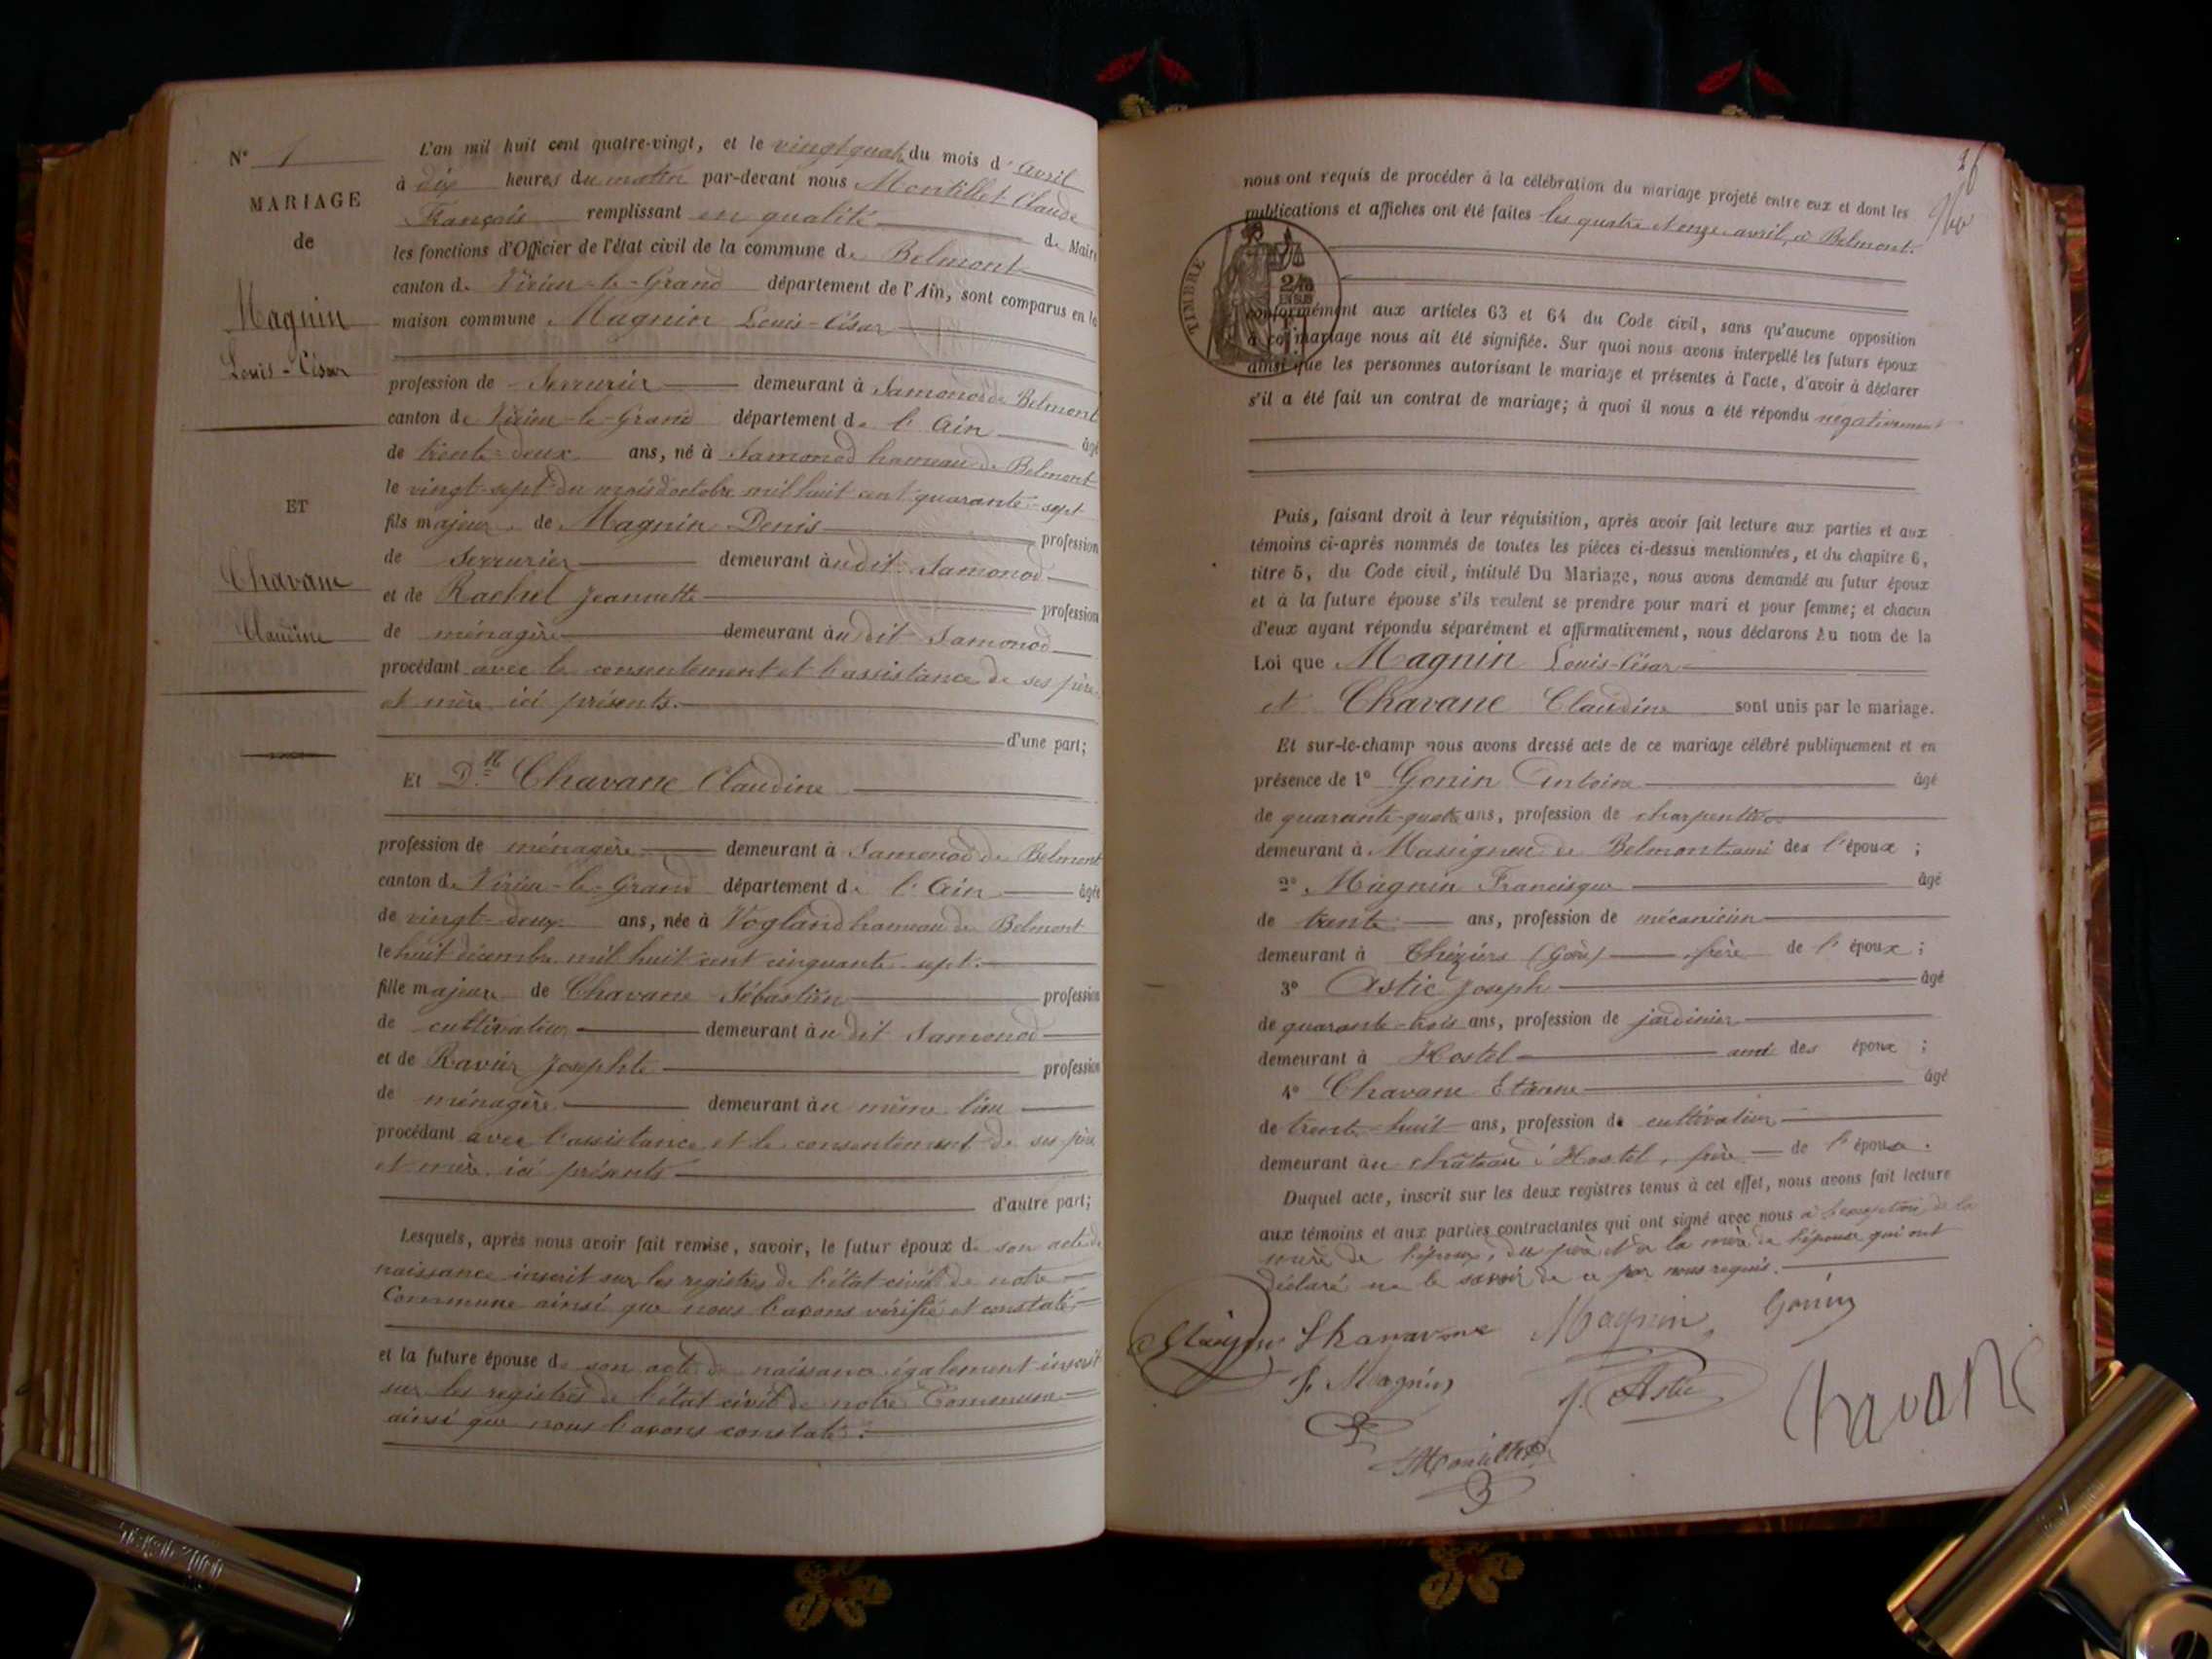 N° 1
MARIAGE
de
Magnin
Louis-César
ET
Chavane
Claudine
L'an mil huit cent quatre-vingt, et le vingt quatre du mois d'avril
à dix heures du matin par-devant nous Montillet Claude
François remplissant en qualité de Maire
les fonctions d'Officier de l'état civil de la commune de Belmont
canton de Virieu-le-Grand département de l'Ain, sont comparus en la
maison commune Magnin Louis-César
profession de Serrurier demeurant à Samonod de Belmont
canton de Virieu-le-Grand département de l'Ain âgé
de trente-deux ans, né à Samonod hameau de Belmont
le vingt-sept du mois d'octobre mil huit cent quarante-sept
fils majeur de Magnin Denis profession
de Serrurier demeurant audit Samonod
et de Rachel Jeannette profession
de ménagère demeurant audit Samonod
procédant avec le consentement et l'assistance de ses père
et mère ici présents.
d'une part;
Et Dlle Chavane Claudine
profession de ménagère demeurant à Samonod de Belmont
canton de Virieu-le-Grand département de l'Ain âgée
de vingt-deux ans, née à Vogland hameau de Belmont
le huit décembre mil huit cent cinquante-sept.
fille majeure de Chavane Sébastien profession
de cultivateur demeurant audit Samonod
et de Ravier Josephte profession
de ménagère demeurant au même lieu
procédant avec l'assistance et le consentement de ses père
et mère ici présents
d'autre part;
Lesquels, après nous avoir fait remise, savoir, le futur époux de son acte de
naissance inscrit sur les registres de l'état civil de notre
Commune ainsi que nous l'avons vérifié et constaté
et la future épouse de son acte de naissance également inscrit
sur les registres de l'état civil de notre Commune
ainsi que nous l'avons constaté.
26
nous ont requis de procéder à la célébration du mariage projeté entre eux et dont les
publications et affiches ont été faites les quatre et onze avril, à Belmont.
TIMBRE
2/10
EN SUS
conformément aux articles 63 et 64 du Code civil, sans qu'aucune opposition
à ce mariage nous ait été signifiée. Sur quoi nous avons interpellé les futurs époux
ainsi que les personnes autorisant le mariage et présentes à l'acte, d'avoir à déclarer
s'il a été fait un contrat de mariage; à quoi il nous a été répondu négativement
Puis, faisant droit à leur réquisition, après avoir fait lecture aux parties et aux
témoins ci-après nommés de toutes les pièces ci-dessus mentionnées, et du chapitre 6,
titre 5, du Code civil, intitulé Du Mariage, nous avons demandé au futur époux
et à la future épouse s'ils veulent se prendre pour mari et pour femme; et chacun
d'eux ayant répondu séparément et affirmativement, nous déclarons au nom de la
Loi que Magnin Louis-César
et Chavane Claudine sont unis par le mariage.
Et sur-le-champ nous avons dressé acte de ce mariage célébré publiquement et en
présence de 1° Gonin Antoine âgé
de quarante-quatre ans, profession de charpentier
demeurant à Massignieu de Belmont ami des l'époux ;
2° Magnin Francisque âgé
de trente ans, profession de mécanicien
demeurant à Théziers (Gard) frère de l'époux ;
3° Astic Joseph âgé
de quarante-trois ans, profession de jardinier
demeurant à Hostel ami des époux ;
4° Chavane Etienne âgé
de trente-huit ans, profession de cultivateur
demeurant au château d'Hostel, frère de l'épouse.
Duquel acte, inscrit sur les deux registres tenus à cet effet, nous avons fait lecture
aux témoins et aux parties contractantes qui ont signé avec nous à l'exception de la
mère de l'époux, du père et de la mère de l'épouse qui ont
déclaré ne le savoir de ce par nous requis.
Magnin Gonin
F. Magnin J. Astic Chavane
Montillet